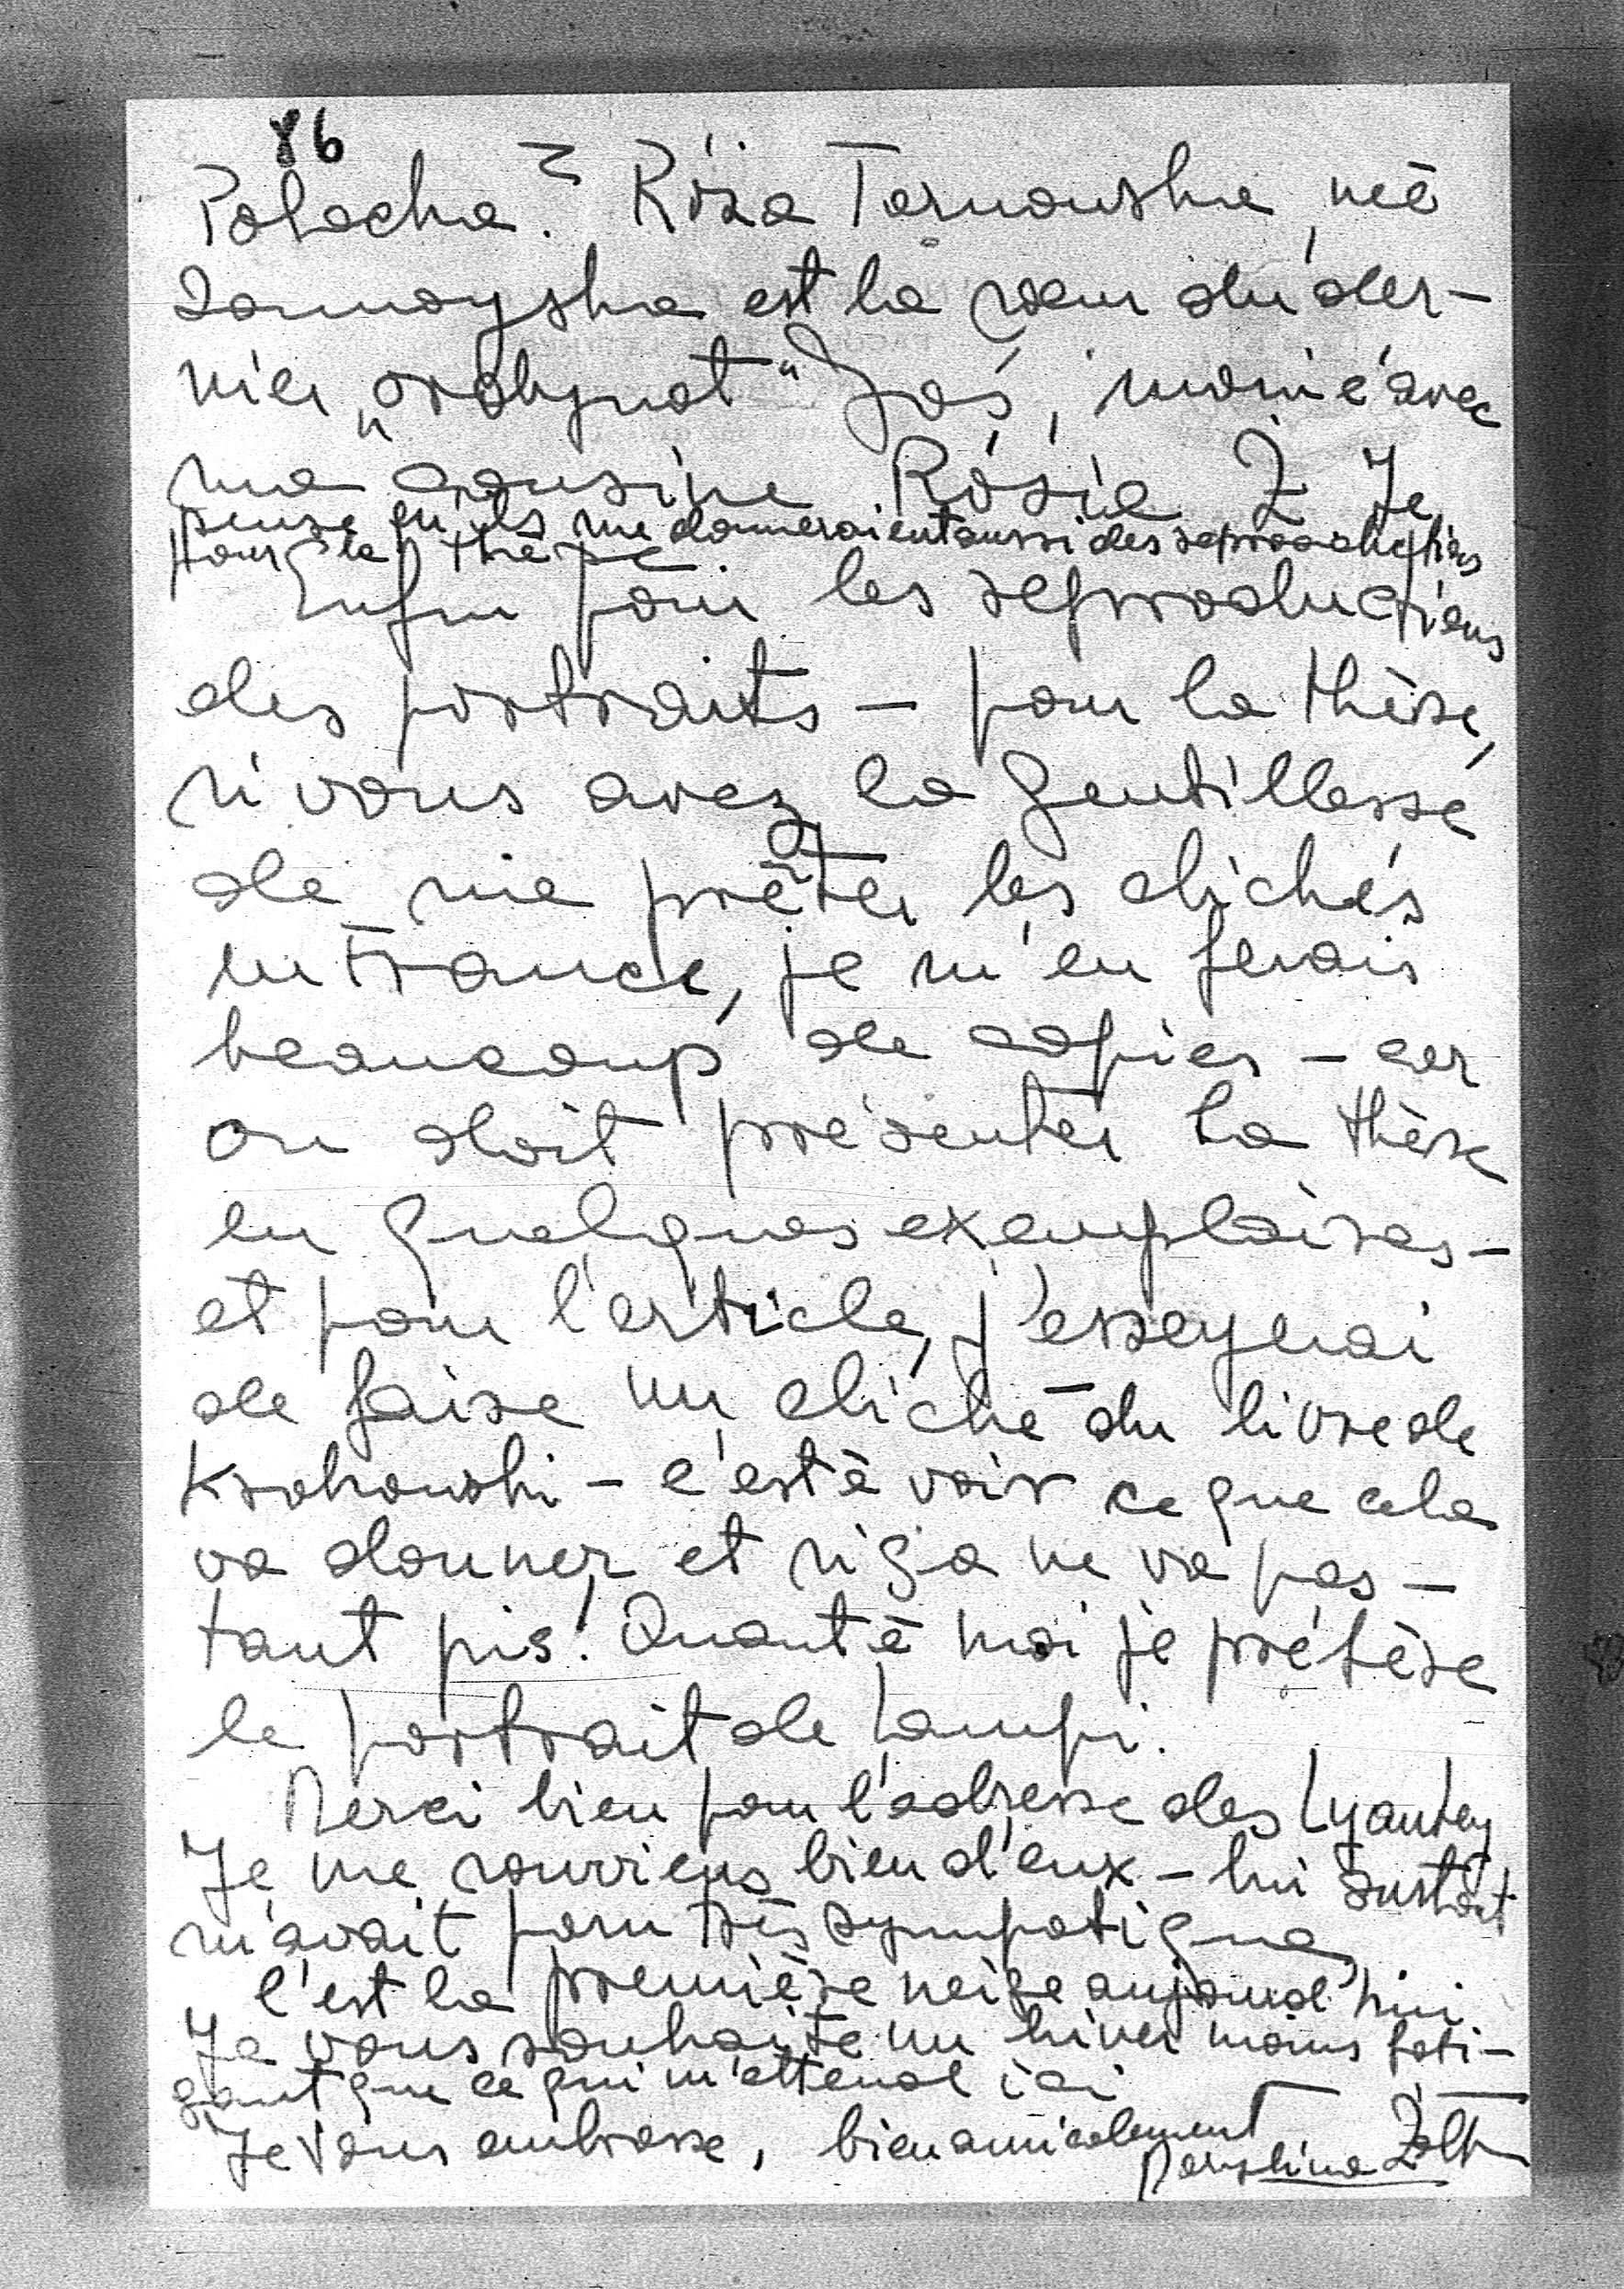 86
Potocka? Róża Tarnowska, née
Zamoyska est la sœur du der-
nier „ordynat" Jaś, marié avec
ma cousine Rósia Ż. Je
pense qu'ils me donneraient aussi des reproductions
pour la thèse
Enfin pour les reproductions
des portraits – pour la thèse,
si vous avez la gentillesse
de me prêter les clichés
en France, je m'en ferais
beaucoup de copies – car
on doit présenter la thèse
en quelques exemplaires –
et pour l'article, j'essayerai
de faire un cliché du livre de
Krokowski – c'est à voir ce que cela
va donner, et si ça ne va pas –
tant pis! Quant à moi je préfère
le portrait de Lampi.
Merci bien pour l'adresse des Lyautey
Je me souviens bien d'eux – lui surtout
m'avait paru très sympatique
C'est la première neige aujourd'hui
Je vous souhaite un hiver moins fati-
gant que ce qui m'attend ici
Je vous embrasse, bien amicalement
Żółt